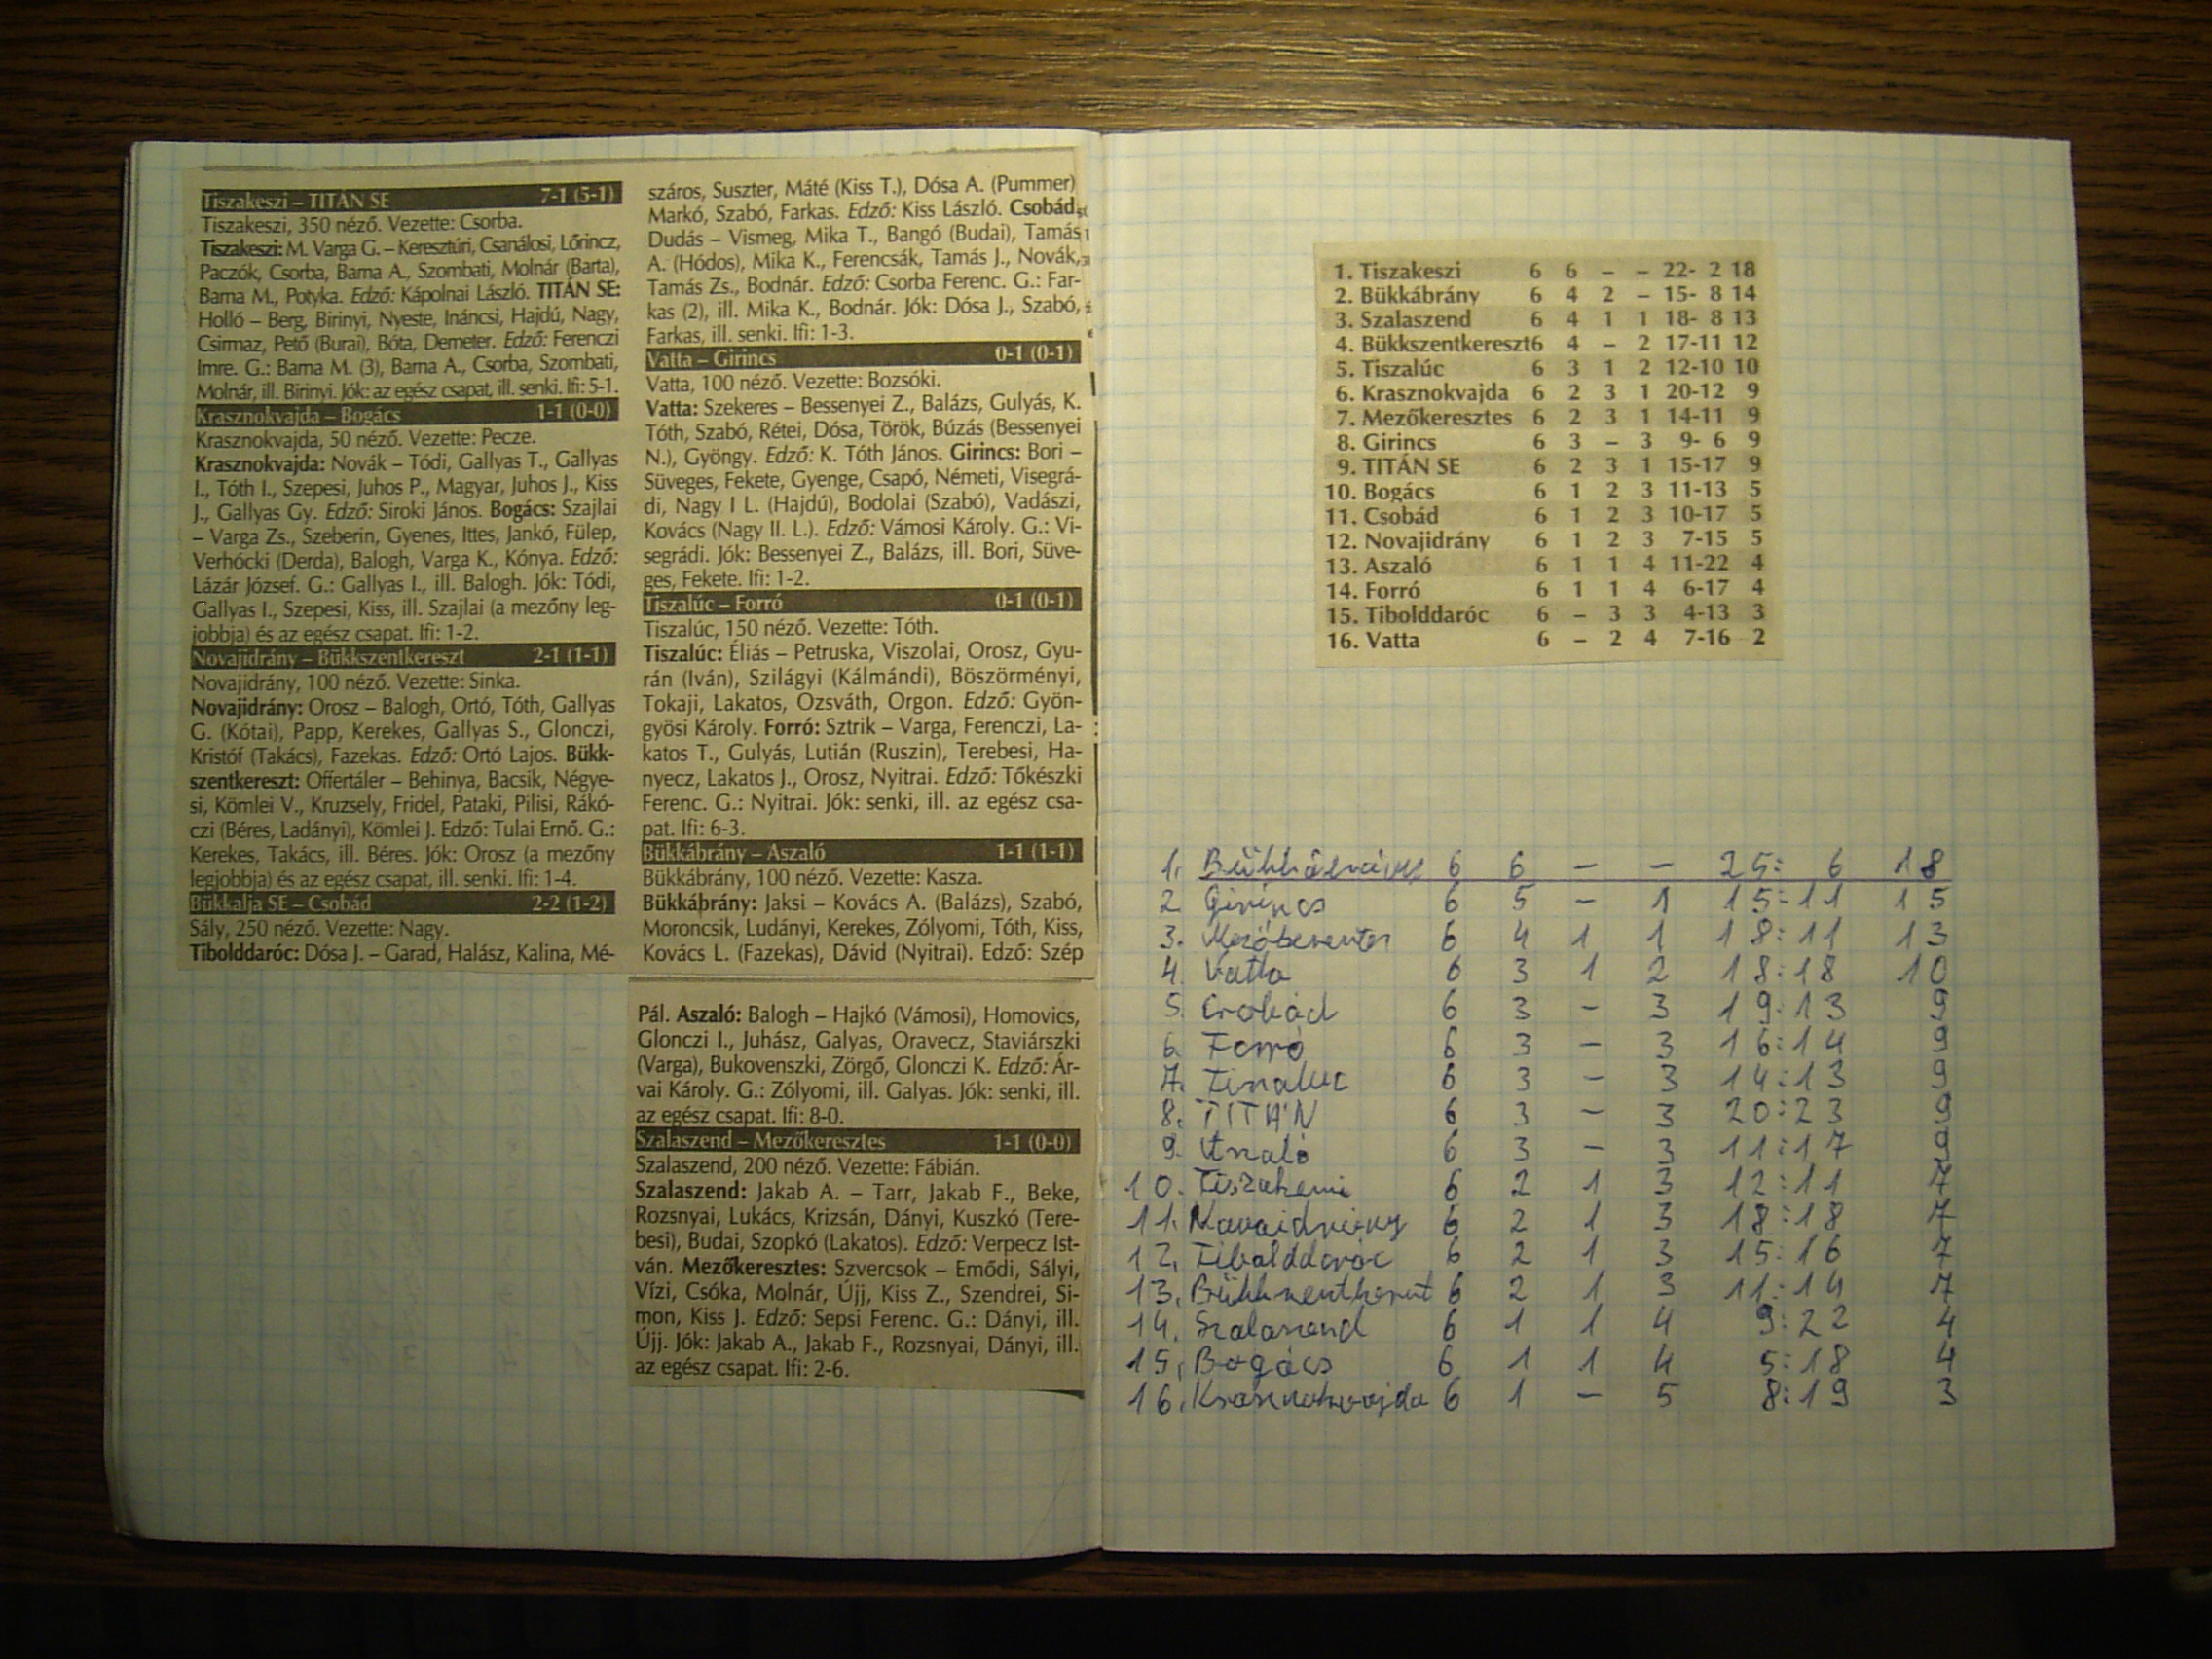 Tiszakeszi – TITÁN SE 7-1 (5-1)
Tiszakeszi, 350 néző. Vezette: Csorba.
Tiszakeszi: M. Varga G. – Keresztúri, Csanálosi, Lőrincz,
Paczók, Csorba, Barna A., Szombati, Molnár (Barta),
Barna M., Potyka. Edző: Kápolnai László. TITÁN SE:
Holló – Berg, Birinyi, Nyeste, Ináncsi, Hajdú, Nagy,
Csirmaz, Pető (Burai), Bóta, Demeter. Edző: Ferenczi
Imre. G.: Barna M. (3), Barna A., Csorba, Szombati,
Molnár, ill. Birinyi. Jók: az egész csapat, ill. senki. Ifi: 5-1.
Krasznokvajda – Bogács 1-1 (0-0)
Krasznokvajda, 50 néző. Vezette: Pecze.
Krasznokvajda: Novák – Tódi, Gallyas T., Gallyas
I., Tóth I., Szepesi, Juhos P., Magyar, Juhos J., Kiss
J., Gallyas Gy. Edző: Siroki János. Bogács: Szajlai
– Varga Zs., Szeberin, Gyenes, Ittes, Jankó, Fülep,
Verhócki (Derda), Balogh, Varga K., Kónya. Edző:
Lázár József. G.: Gallyas I., ill. Balogh. Jók: Tódi,
Gallyas I., Szepesi, Kiss, ill. Szajlai (a mezőny leg-
jobbja) és az egész csapat. Ifi: 1-2.
Novajidrány – Bükkszentkereszt 2-1 (1-1)
Novajidrány, 100 néző. Vezette: Sinka.
Novajidrány: Orosz – Balogh, Ortó, Tóth, Gallyas
G. (Kótai), Papp, Kerekes, Gallyas S., Glonczi,
Kristóf (Takács), Fazekas. Edző: Ortó Lajos. Bükk-
szentkereszt: Offertáler – Behinya, Bacsik, Négye-
si, Kömlei V., Kruzsely, Fridel, Pataki, Pilisi, Rákó-
czi (Béres, Ladányi), Kömlei J. Edző: Tulai Ernő. G.:
Kerekes, Takács, ill. Béres. Jók: Orosz (a mezőny
legjobbja) és az egész csapat, ill. senki. Ifi: 1-4.
Bükkalja SE – Csobád 2-2 (1-2)
Sály, 250 néző. Vezette: Nagy.
Tibolddaróc: Dósa J. – Garad, Halász, Kalina, Mé-
száros, Suszter, Máté (Kiss T.), Dósa A. (Pummer)
Markó, Szabó, Farkas. Edző: Kiss László. Csobád:
Dudás – Vismeg, Mika T., Bangó (Budai), Tamás
A. (Hódos), Mika K., Ferencsák, Tamás J., Novák,
Tamás Zs., Bodnár. Edző: Csorba Ferenc. G.: Far-
kas (2), ill. Mika K., Bodnár. Jók: Dósa J., Szabó,
Farkas, ill. senki. Ifi: 1-3.
Vatta – Girincs 0-1 (0-1)
Vatta, 100 néző. Vezette: Bozsóki.
Vatta: Szekeres – Bessenyei Z., Balázs, Gulyás, K.
Tóth, Szabó, Rétei, Dósa, Török, Búzás (Bessenyei
N.), Gyöngy. Edző: K. Tóth János. Girincs: Bori –
Süveges, Fekete, Gyenge, Csapó, Németi, Visegrá-
di, Nagy I L. (Hajdú), Bodolai (Szabó), Vadászi,
Kovács (Nagy II. L.). Edző: Vámosi Károly. G.: Vi-
segrádi. Jók: Bessenyei Z., Balázs, ill. Bori, Süve-
ges, Fekete. Ifi: 1-2.
Tiszalúc – Forró 0-1 (0-1)
Tiszalúc, 150 néző. Vezette: Tóth.
Tiszalúc: Éliás – Petruska, Viszolai, Orosz, Gyu-
rán (Iván), Szilágyi (Kálmándi), Böszörményi,
Tokaji, Lakatos, Ozsváth, Orgon. Edző: Gyön-
gyösi Károly. Forró: Sztrik – Varga, Ferenczi, La-
katos T., Gulyás, Lutián (Ruszin), Terebesi, Ha-
nyecz, Lakatos J., Orosz, Nyitrai. Edző: Tőkészki
Ferenc. G.: Nyitrai. Jók: senki, ill. az egész csa-
pat. Ifi: 6-3.
Bükkábrány – Aszaló 1-1 (1-1)
Bükkábrány, 100 néző. Vezette: Kasza.
Bükkábrány: Jaksi – Kovács A. (Balázs), Szabó,
Moroncsik, Ludányi, Kerekes, Zólyomi, Tóth, Kiss,
Kovács L. (Fazekas), Dávid (Nyitrai). Edző: Szép
Pál. Aszaló: Balogh – Hajkó (Vámosi), Homovics,
Glonczi I., Juhász, Galyas, Oravecz, Staviárszki
(Varga), Bukovenszki, Zörgő, Glonczi K. Edző: Ár-
vai Károly. G.: Zólyomi, ill. Galyas. Jók: senki, ill.
az egész csapat. Ifi: 8-0.
Szalaszend – Mezőkeresztes 1-1 (0-0)
Szalaszend, 200 néző. Vezette: Fábián.
Szalaszend: Jakab A. – Tarr, Jakab F., Beke,
Rozsnyai, Lukács, Krizsán, Dányi, Kuszkó (Tere-
besi), Budai, Szopkó (Lakatos). Edző: Verpecz Ist-
ván. Mezőkeresztes: Szvercsok – Emődi, Sályi,
Vízi, Csóka, Molnár, Újj, Kiss Z., Szendrei, Si-
mon, Kiss J. Edző: Sepsi Ferenc. G.: Dányi, ill.
Újj. Jók: Jakab A., Jakab F., Rozsnyai, Dányi, ill.
az egész csapat. Ifi: 2-6.
1. Tiszakeszi 6 6 – – 22- 2 18
2. Bükkábrány 6 4 2 – 15- 8 14
3. Szalaszend 6 4 1 1 18- 8 13
4. Bükkszentkereszt6 4 – 2 17-11 12
5. Tiszalúc 6 3 1 2 12-10 10
6. Krasznokvajda 6 2 3 1 20-12 9
7. Mezőkeresztes 6 2 3 1 14-11 9
8. Girincs 6 3 – 3 9- 6 9
9. TITÁN SE 6 2 3 1 15-17 9
10. Bogács 6 1 2 3 11-13 5
11. Csobád 6 1 2 3 10-17 5
12. Novajidrány 6 1 2 3 7-15 5
13. Aszaló 6 1 1 4 11-22 4
14. Forró 6 1 1 4 6-17 4
15. Tibolddaróc 6 – 3 3 4-13 3
16. Vatta 6 – 2 4 7-16 2
1. Bükkábrány 6 6 – – 25: 6 18
2. Girincs 6 5 – 1 15:11 15
3. Mezőkeresztes 6 4 1 1 18:11 13
4. Vatta 6 3 1 2 18:18 10
5. Csobád 6 3 – 3 19:13 9
6. Forró 6 3 – 3 16:14 9
7. Tiszaluc 6 3 – 3 14:13 9
8. TITÁN 6 3 – 3 20:23 9
9. Aszaló 6 3 – 3 11:17 9
10. Tiszakeszi 6 2 1 3 12:11 7
11. Novajidrány 6 2 1 3 18:18 7
12. Tibolddaróc 6 2 1 3 15:16 7
13. Bükkszentkereszt 6 2 1 3 11:14 7
14. Szalaszend 6 1 1 4 9:22 4
15. Bogács 6 1 1 4 5:18 4
16. Krasznokvajda 6 1 – 5 8:19 3